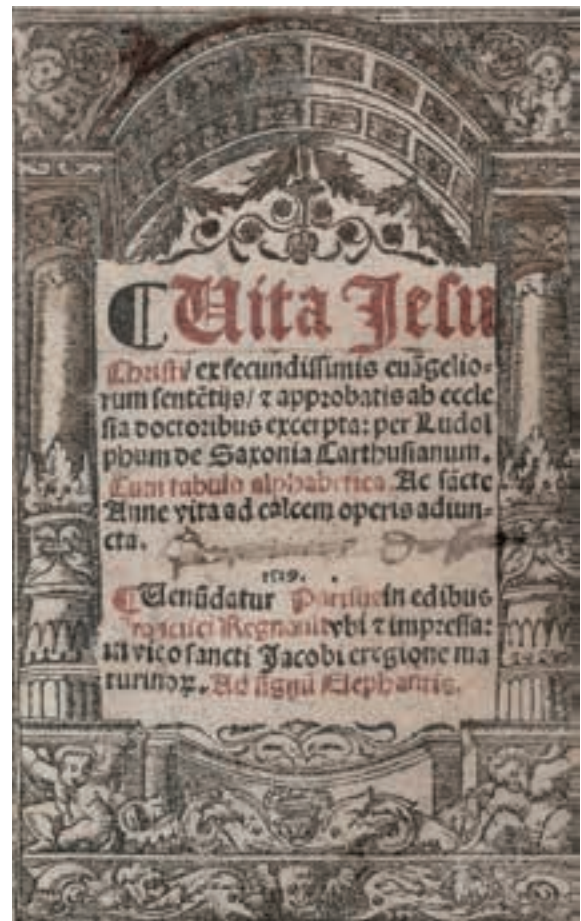 ¶Uita Jesu
Christi/ ex fecundissimis euãgelio-
rum sentẽtijs/ ⁊ approbatis ab eccle
sia doctoribus excerpta: per Ludol
phum de Saxonia Carthusianum.
Cum tabula alphabetica. Ac sãcte
Anne vita ad calcem operis adiun-
cta.
1519.
¶Uenũdatur Parisijs in edibus
Francisci Regnault vbi ⁊ impressa:
in vico sancti Jacobi eregione ma
turinoꝝ. Ad signũ Elephantis.